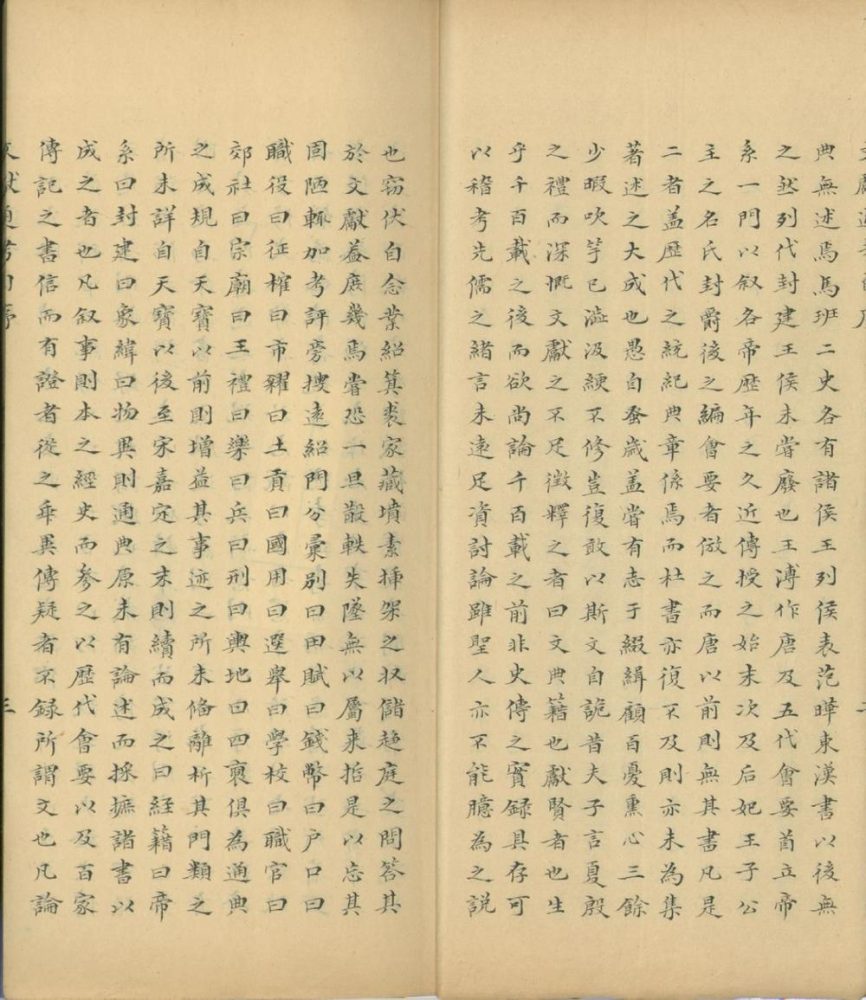 典無述焉馬班二史各有諸侯王列侯表范曄東漢書以後無
之然列代封建王侯未嘗廢也王溥作唐及五代會要首立帝
系一門以叙各帝歴年之久近傳授之始末次及后妃王子公
主之名氏封爵後之編會要者倣之而唐以前則無其書凡是
二者盖歴代之統紀典章係焉而杜書亦復不及則亦未為集
著述之大成也愚自蚤歳盖嘗有志于綴緝顧百憂熏心三餘
少暇吹竽已澁汲綆不修豈復敢以斯文自詭昔夫子言夏殷
之禮而深慨文獻之不足徴釋之者曰文典籍也獻賢者也生
乎千百載之後而欲尚論千百載之前非史傳之實録具存可
以稽考先儒之緒言未遠足資討論雖聖人亦不能臆為之説
也竊伏自念業紹箕裘家藏墳索挿架之収儲趨庭之問答其
於文獻葢庶幾焉嘗恐一旦散軼失墜無以屬来哲是以忘其
固陋輒加考評旁搜逺紹門分彚别曰田賦曰錢幣曰户口曰
職役曰征榷曰市糴曰土貢曰國用曰選舉曰學校曰職官曰
郊社曰宗廟曰王禮曰樂曰兵曰刑曰輿地曰四裔俱為通典
之成規自天寳以前則増益其事迹之所未備離析其門類之
所未詳自天寳以後至宋嘉定之末則續而成之曰經籍曰帝
系曰封建曰象緯曰物異則通典原未有論述而採摭諸書以
成之者也凡叙事則本之經史而參之以歴代會要以及百家
傳記之書信而有證者從之乖異傳疑者不録所謂文也凡論
三